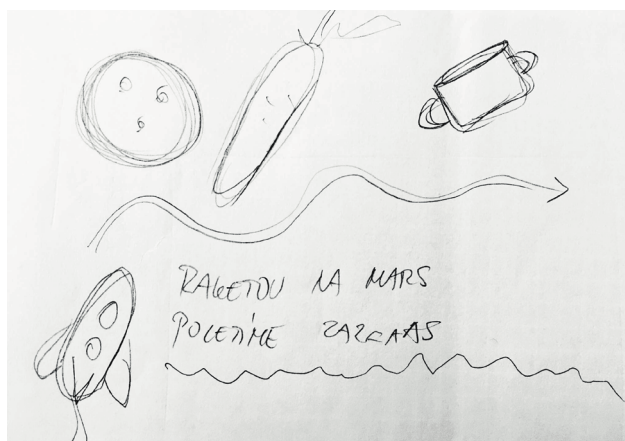 RAKETOU NA MARS
POLETÍME ZAZKAAS